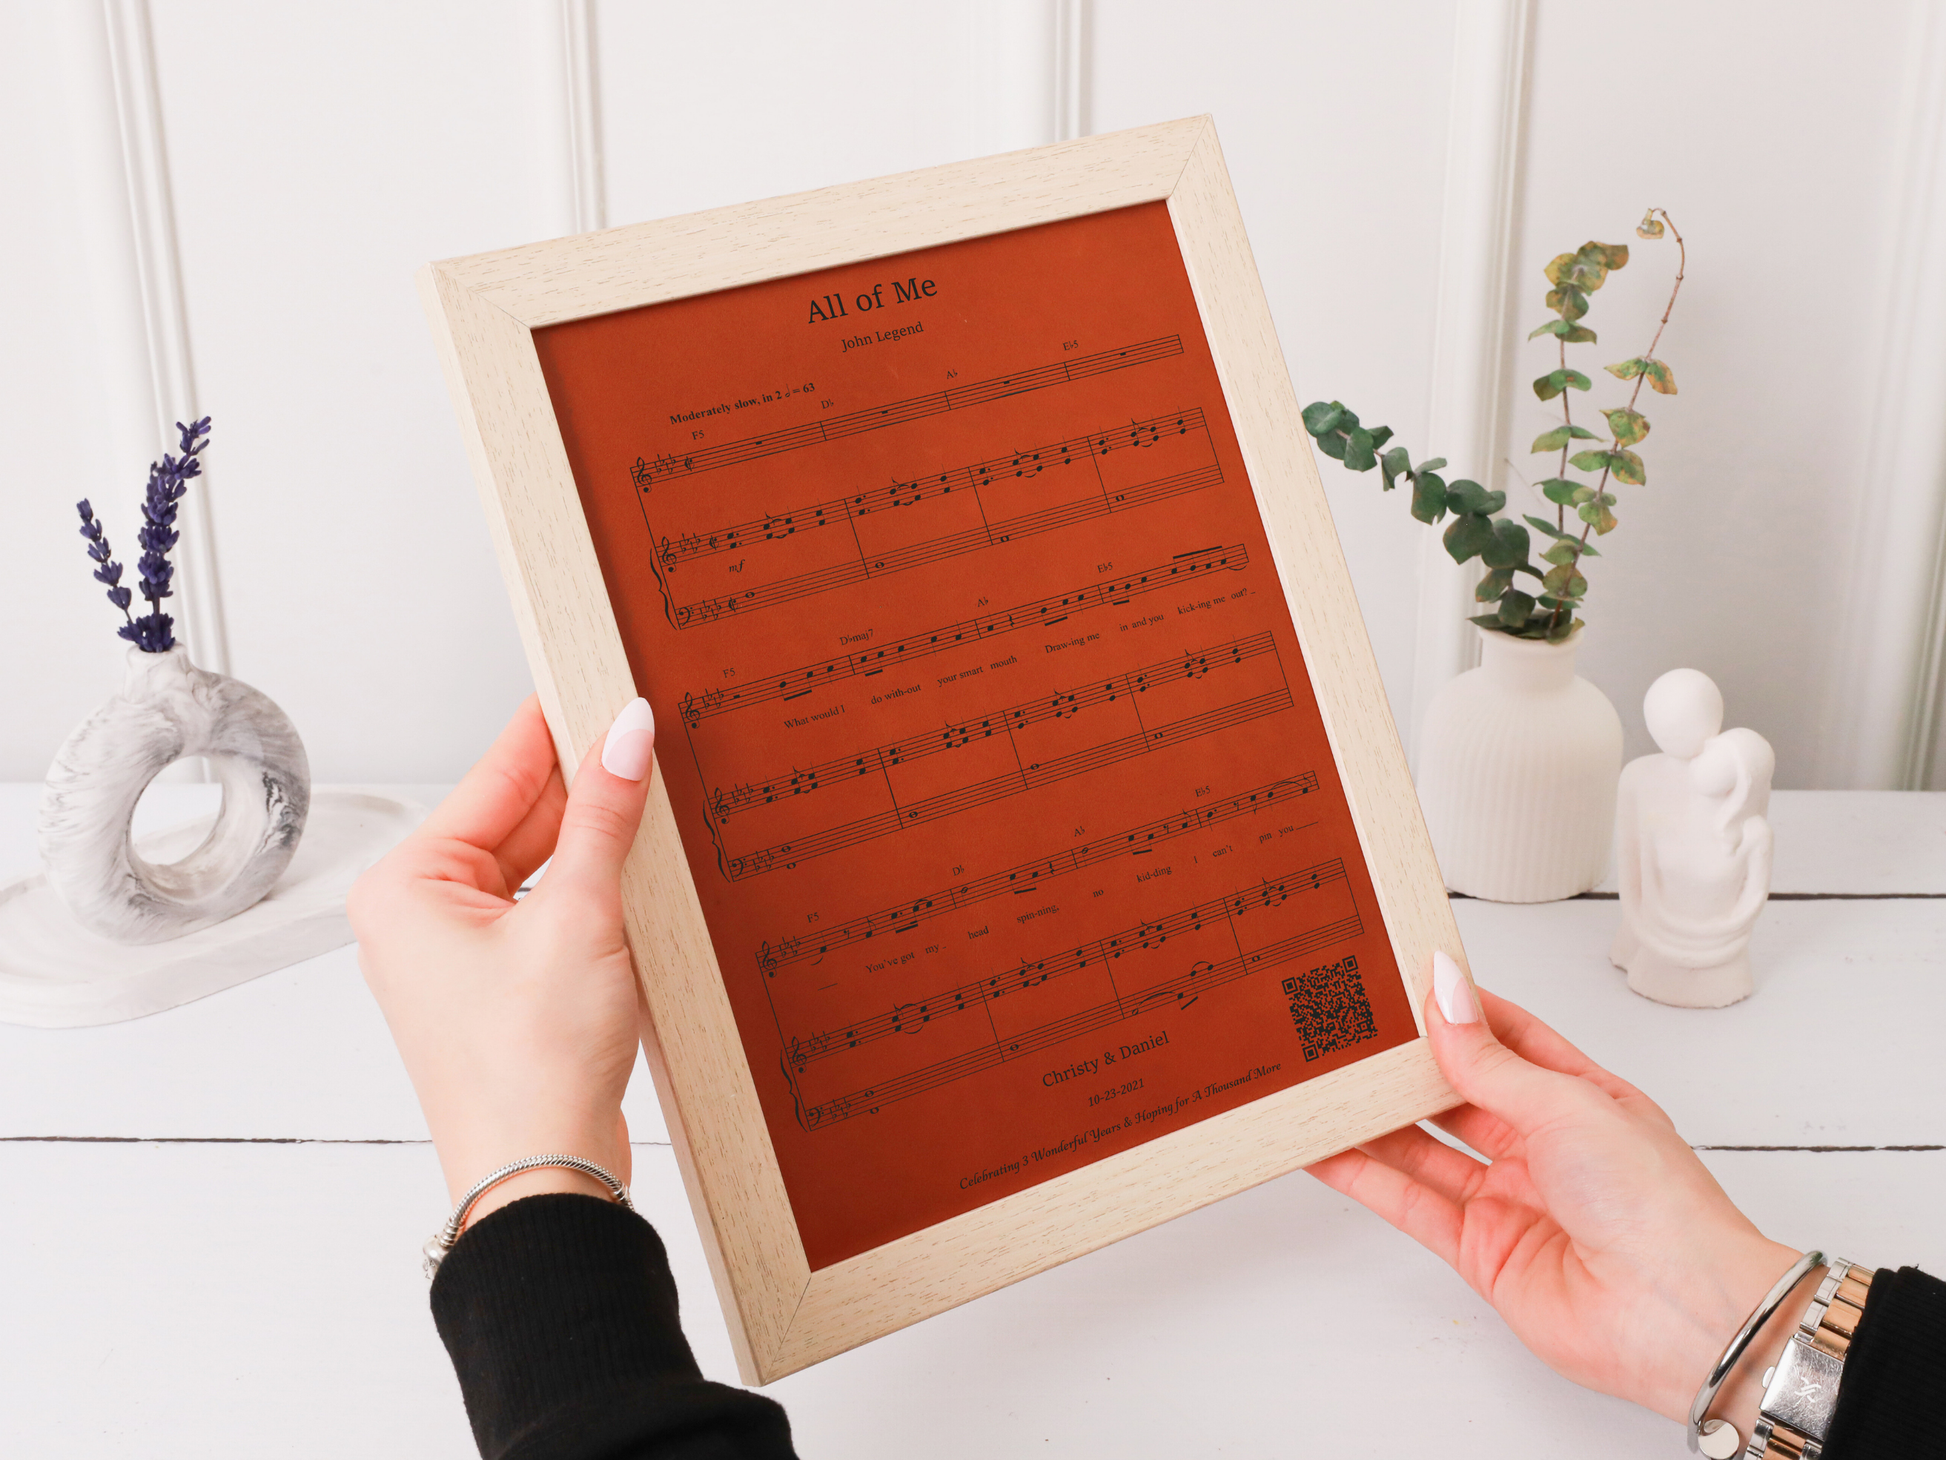 All of Me
John Legend
Moderately slow, in 2 𝅗𝅥 = 63
F5 D♭ A♭ E♭5
mf
F5 D♭maj7 A♭ E♭5
What would I do with-out your smart mouth Draw-ing me in and you kick-ing me out? _
F5 D♭ A♭ E♭5
You've got my _ head spin-ning, no kid-ding I can't pin you ___
Christy & Daniel
10-23-2021
Celebrating 3 Wonderful Years & Hoping for A Thousand More